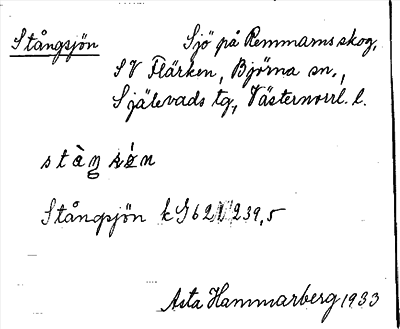 Stångsjön Sjö på Remmarns skog,
SV Flärken, Björna sn.,
Själevads tg, Västernorrl. l.
Stångsjön kG62V239,5
Asta Hammarberg 1933